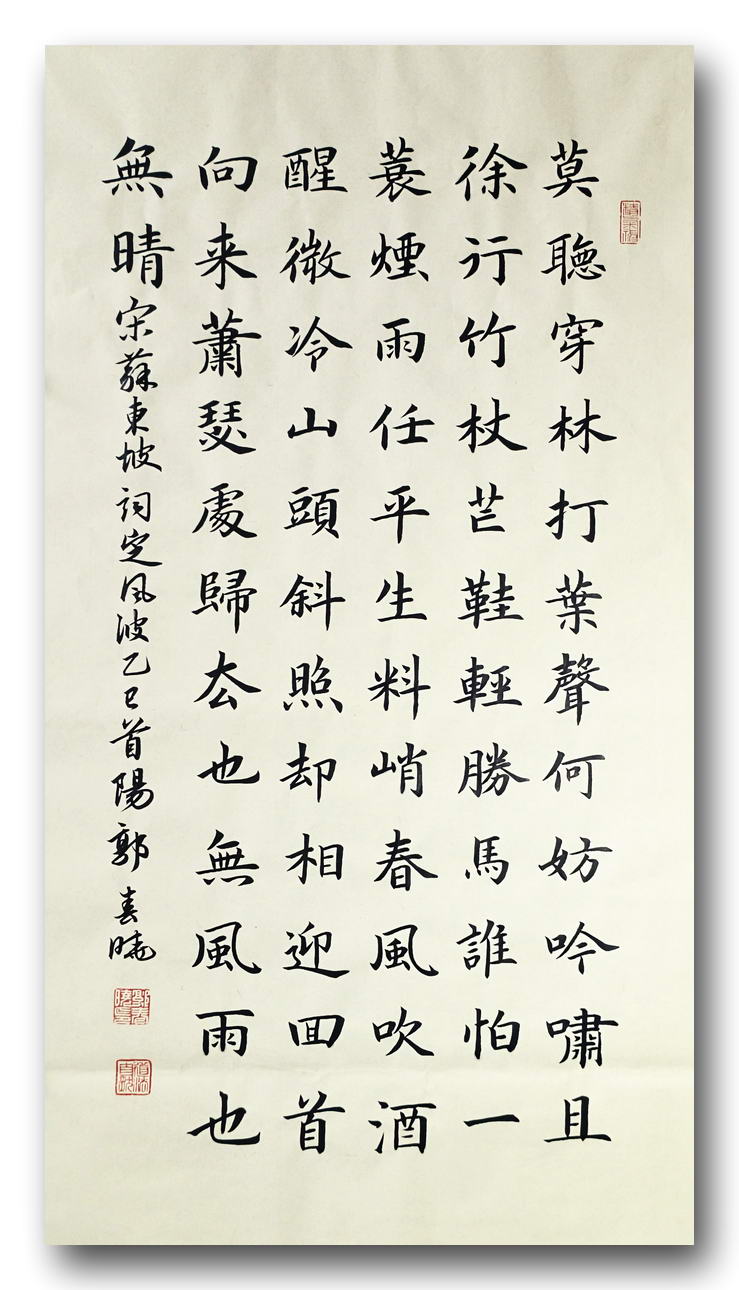 莫聽穿林打葉聲何妨吟嘯且
徐行竹杖芒鞋輕勝馬誰怕一
蓑煙雨任平生料峭春風吹酒
醒微冷山頭斜照却相迎囬首
向来蕭瑟處歸厺也無風雨也
無晴宋蘇東坡詞定風波乙巳首陽郭春曉